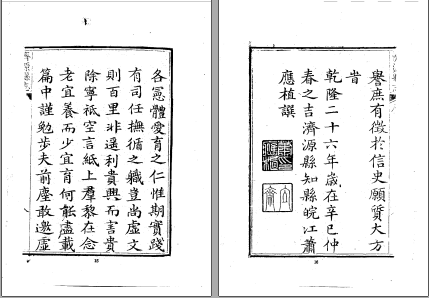 各憲體愛育之仁惟期實踐
有司任撫循之職豈尚虛文
則百里非遥利貴興而害貴
除寧祇空言紙上羣黎在念
老宜養而少宜育何能盡載
篇中謹勉步夫前塵敢邀虛
譽庶有徵於信史願質大方
旹
乾隆二十六年歲在辛巳仲
春之吉濟源縣知縣皖江蕭
應植譔